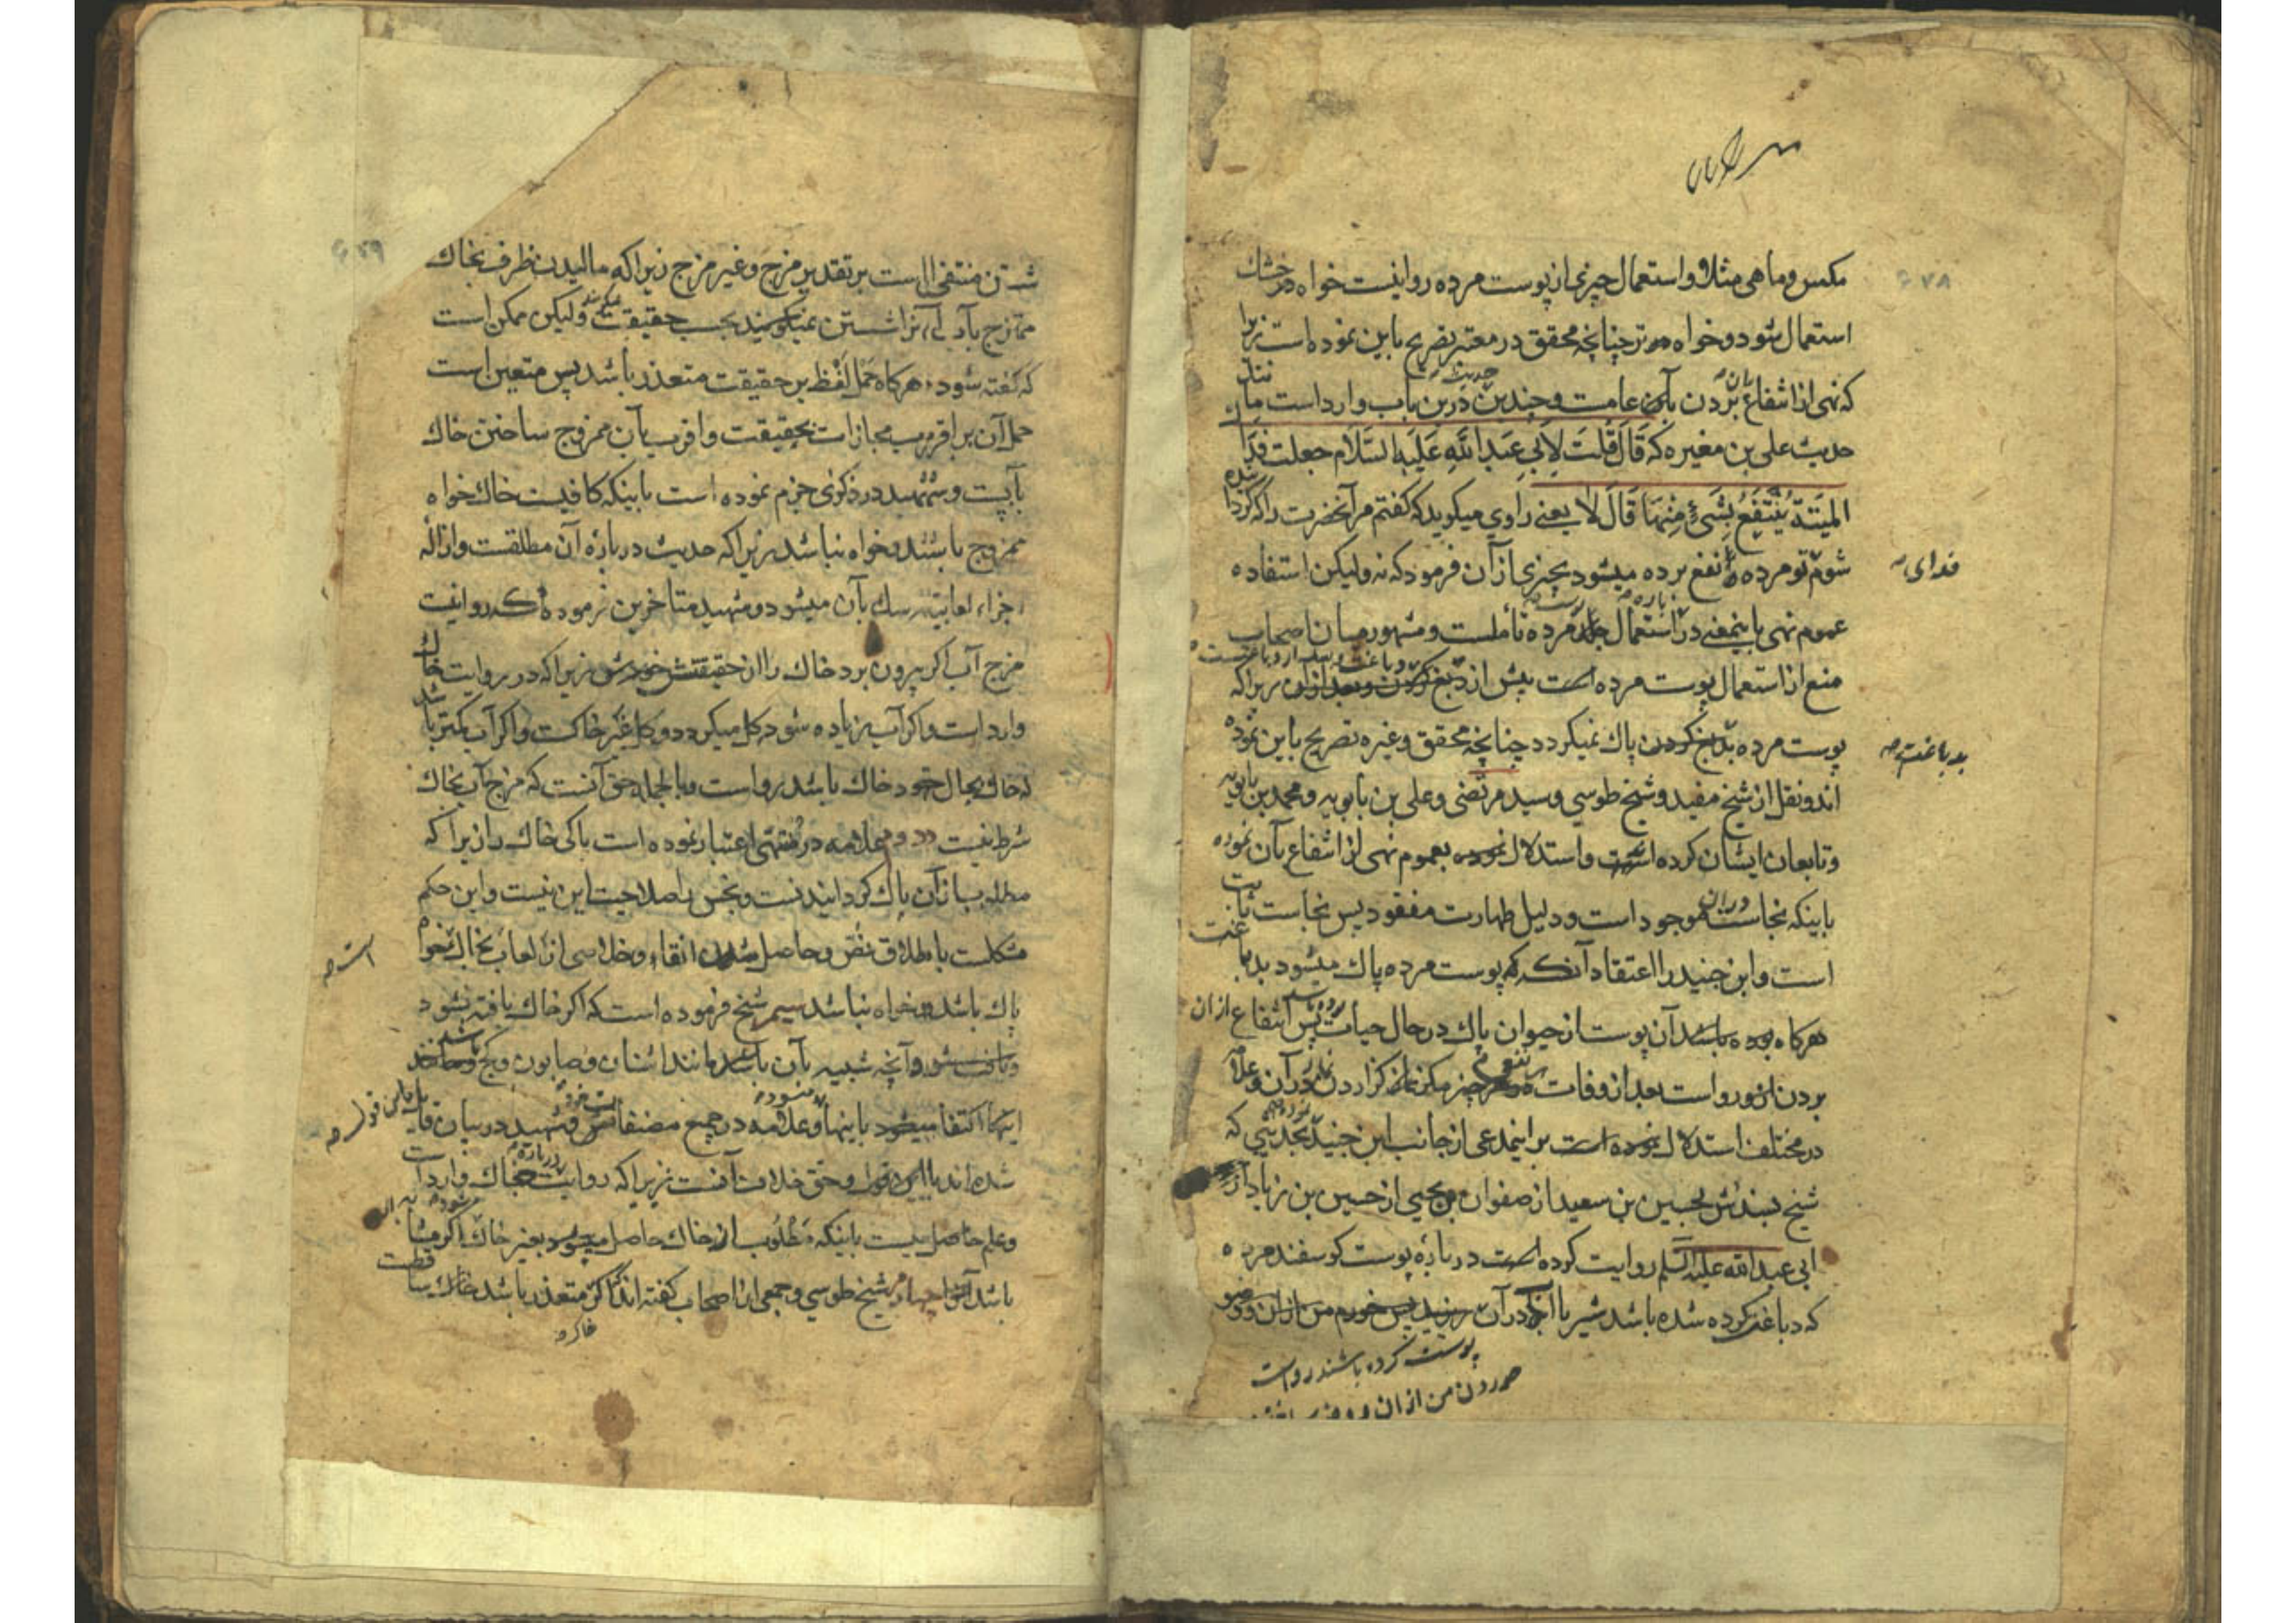 مکس و ماهی مثلا و استعمال چیزی از پوست مرده روا نیست خواه در خشک
استعمال شود و خواه در تر چنانچه محقق در معتبر تصریح باین نموده است زیرا
که نهی از انتفاع بردن بآن عامست و چندین حدیث درین باب وارد است مانند
حدیث علی بن مغیره که قَالَ قُلْتُ لِاَبِی عَبْدِ اللّٰهِ عَلَیْهِ السَّلَام جعلت فِدَا
المَیْتَةُ یُنْتَفَعُ بِشَیْءٍ مِنْهَا قَالَ لَا یعنی راوی میکوید که کفتم مر آنحضرت را که کردانیده
فدای
شوم تو مرده نفع برده میشود بچیزی از آن فرمود که نه ولیکن استفاده
عموم نهی باینمعنی در باره استعمال پوست مرده تاملست و مشهور میان اصحاب
منع از استعمال پوست مرده است پیش از دباغت و بعد از دباغت زیرا که
بدباغت
پوست مرده بدبغ کردن پاک نمیکردد چنانچه محقق و غیره تصریح باین نموده
اند و نقل از شیخ مفید و شیخ طوسی و سید مرتضی و علی بن بابویه و محمد بن بابویه
و تابعان ایشان کرده است و استدلال نموده بعموم نهی از انتفاع بآن نموده
باینکه نجاست در آن موجود است و دلیل طهارت مفقود پس نجاست ثابت
است و ابن جنید را اعتقاد آنکه که پوست مرده پاک میشود بدباغت
هرکاه بوده باشد آن پوست از حیوان پاک در حال حیات پس انتفاع از آن
بردن روا است بعد از وفات هر چیز مکر نماز کزاردن در آن و علامه
در مختلف استدلال نموده است بر اینمدعی از جانب ابن جنید بحدیثی که
شیخ بسندش بحسین بن سعید از صفوان بن یحیی از حسین بن زیاد از
ابی عبد الله علیه السلم روایت کرده است در باره پوست کوسفند مرده
که دباغت کرده شده باشد شیر یا آب در آن ریزند پس خورم من از آن و وضو
پوست کرده باشند رواست
خوردن من از آن و وضو
شستن منتفی است بر تقدیر مزج و غیر مزج زیرا که مالیدن ظرف بخاک
ممتزج بآب را شستن نمیکویند بحسب حقیقت ولیکن ممکن است
که کفته شود هرکاه حمل لفظ بر حقیقت متعذر باشد پس متعین است
حمل آن بر اقرب مجازات بحقیقت و اقرب بآن ممزوج ساختن خاک
بآبست و شهید در ذکری جزم نموده است باینکه کافیست خاک خواه
ممزوج باشد و خواه نباشد زیرا که حدیث در باره آن مطلقست و ازاله
اجزاء لعابیه سک بآن میشود و شهید متاخرین فرموده که روا نیست
مزج آب اکر بیرون برد خاک را از حقیقتش زیرا که در روایت خاک
وارد است و اکر آب زیاده شود کل میکردد و کل غیر خاکست و اکر آب کمتر باشد
که خاک بحال خود خاک باشد رواست و بالجمله حق آنست که مزج آب بخاک
شرط نیست دوم علامه در منتهی اعتبار نموده است پاکی خاک را زیرا که
مطلب از آن پاک کردانیدنست و نجس را صلاحیت این نیست و این حکم
است
مشکلست باطلاق نص و حاصل شدن انقاء و خلاصی از لعاب بخاک خواه
پاک باشد و خواه نباشد سیم شیخ فرموده است که اکر خاک یافته نشود
و آنچه شبیه بآن باشد مانند اشنان و صابون و کچ
اینها اکتفا میشود باینها و علامه در جمیع مصنفاتش و شهید در بیان قایل
شده اند باین قول و حق خلاف آنست زیرا که روایت در باره خاک وارد است
و علم حاصل نیست باینکه مطلوب از خاک حاصل میشود بغیر خاک اکر مشابه
باشد چهارم شیخ طوسی و جمعی از اصحاب کفته اند اکر متعذر باشد خاک ساقطست